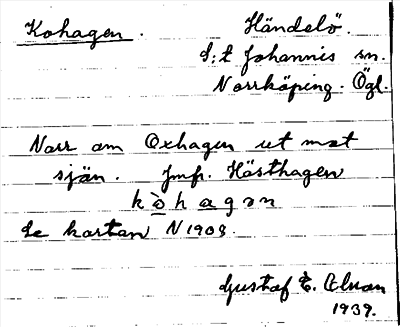 Kohagen. Händelö.
S:t Johannis sn.
Norrköping. Ögl.
Norr om Oxhagen ut mot
sjön. Jmfr. Hästhagen
kòhagən
Se kartan N 1909.
Gustaf E. Alvan
1939.